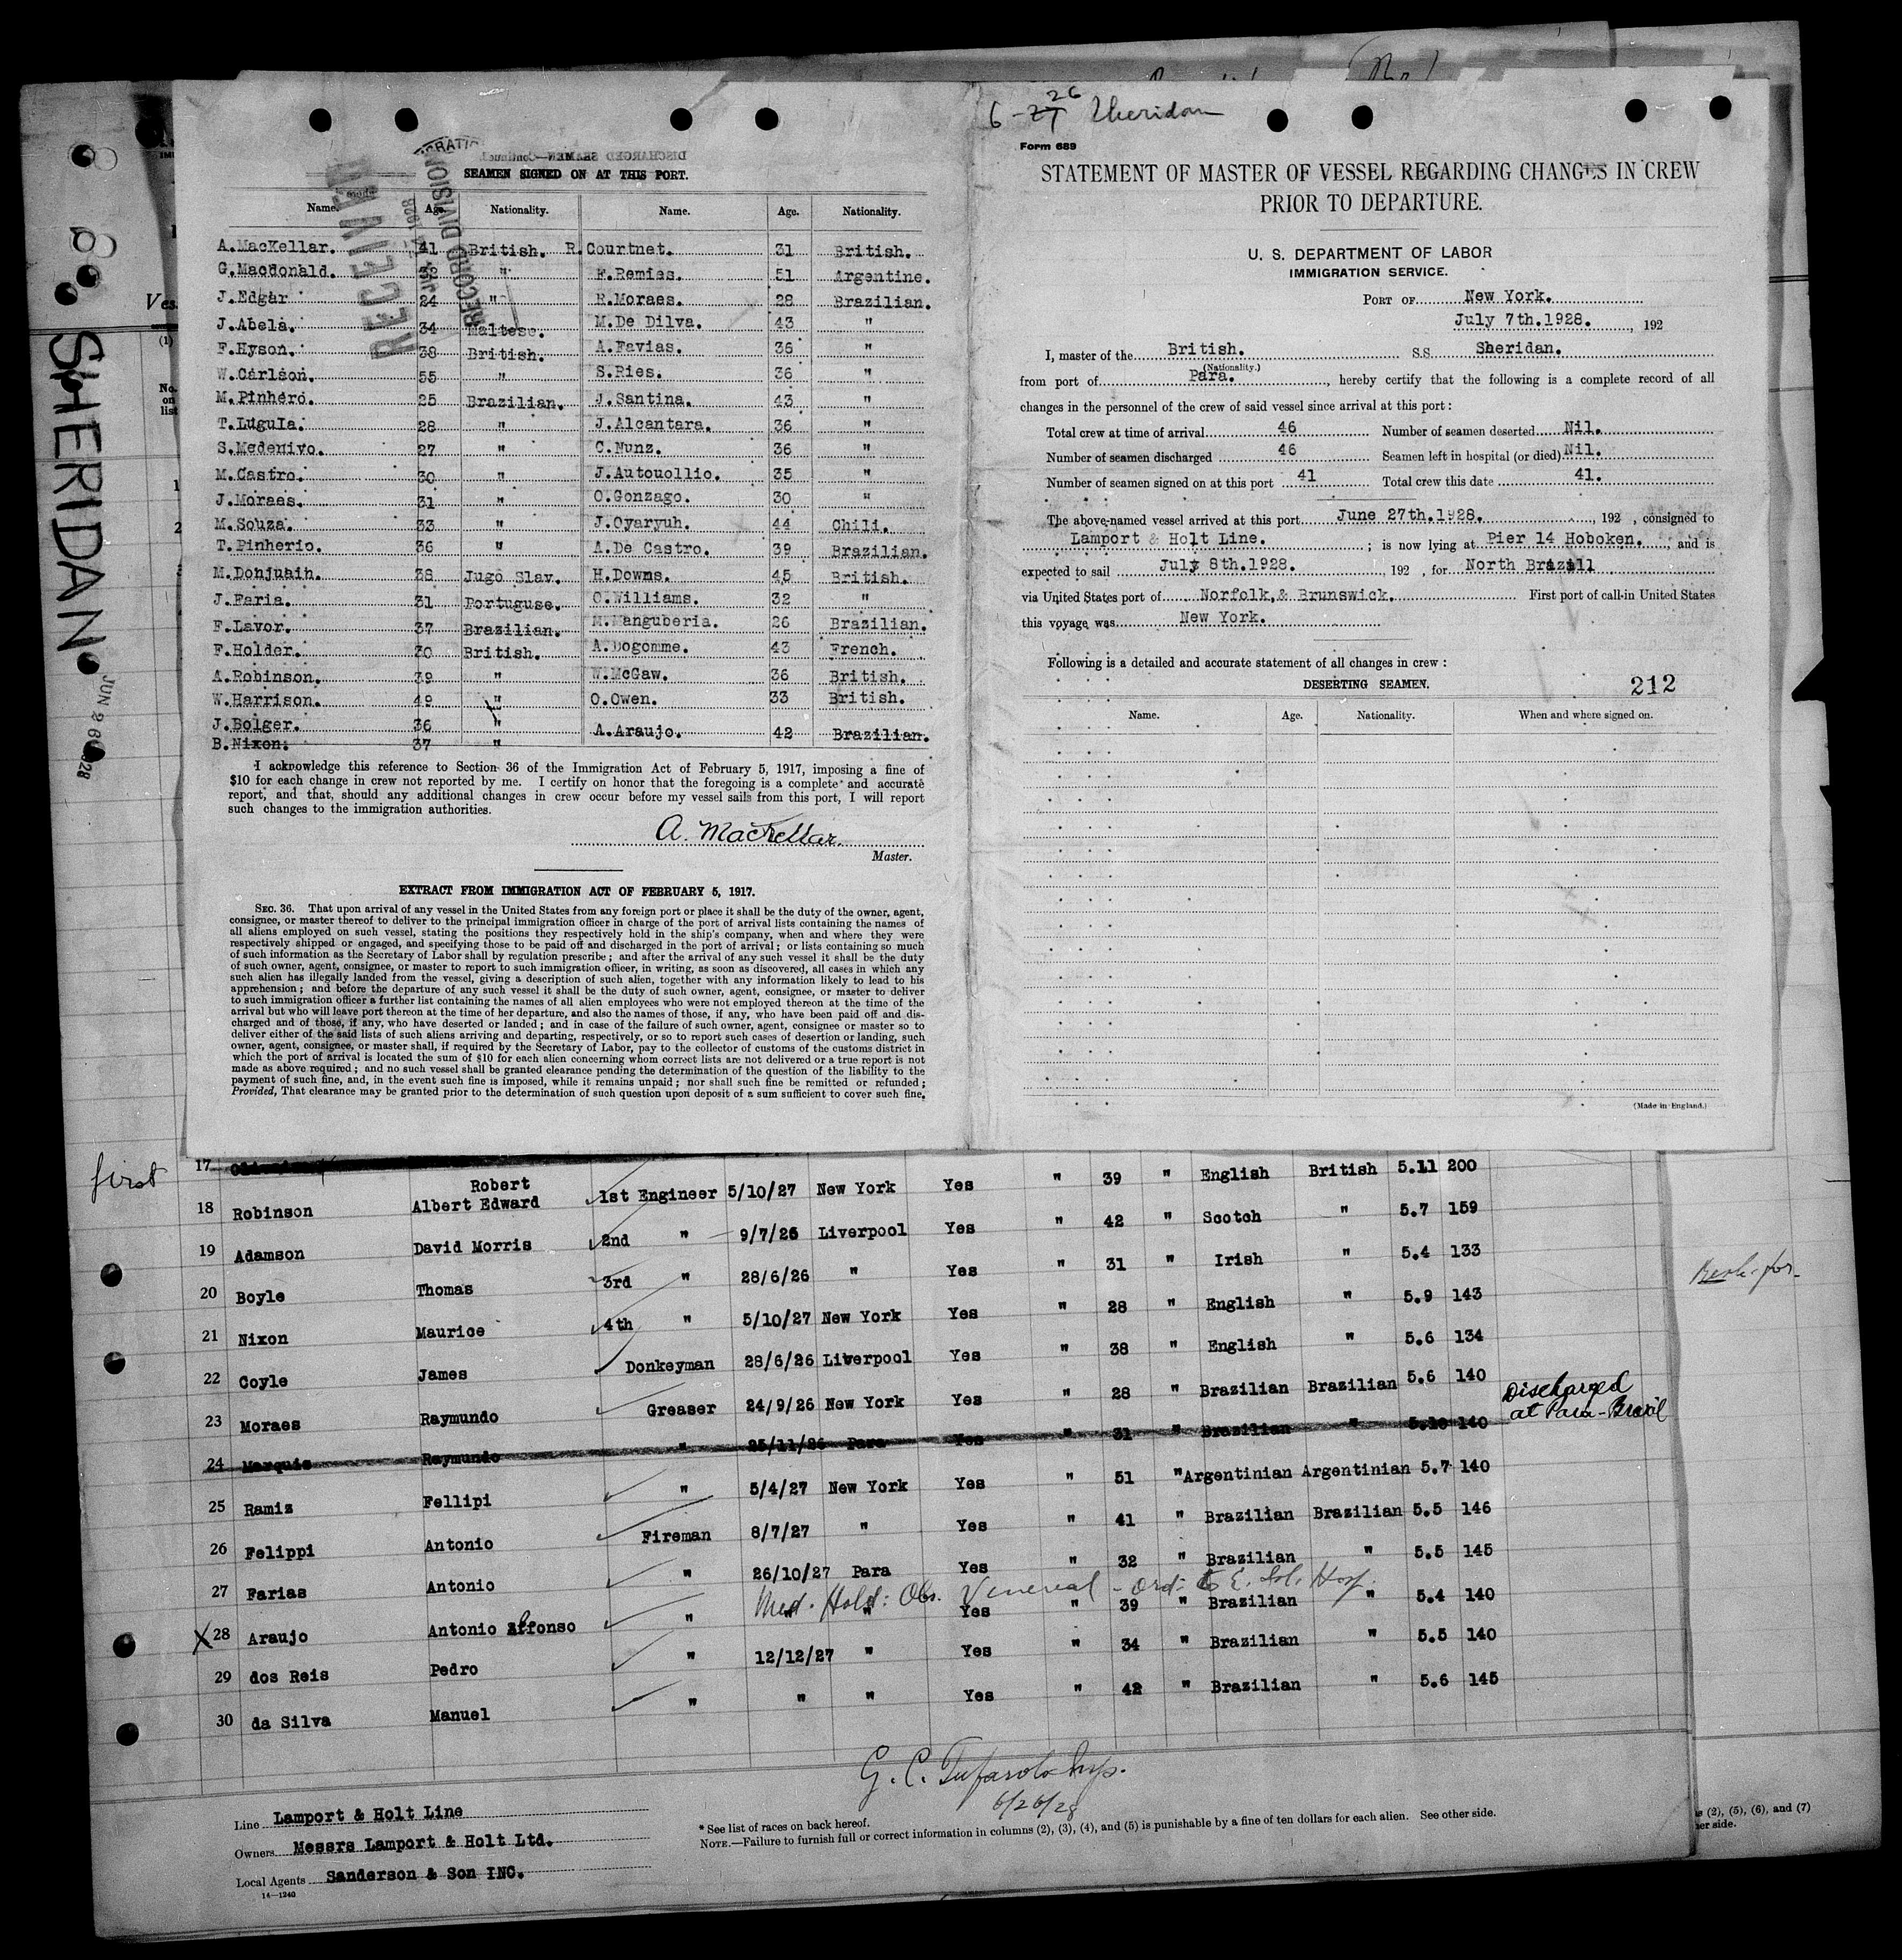 SHERIDAN
JUN 26 1928
DISCHARGED SEAMEN—Continued
SEAMEN SIGNED ON AT THIS PORT.
RECEIVED
RECORD DIVISION
Name. Age. Nationality. Name. Age. Nationality.
A.MacKellar. 41 British. R.Courtnet. 31 British.
G.Macdonald. 32 " F.Remias. 51 Argentine.
J.Edgar 24 " R.Moraes. 28 Brazilian.
J.Abela. 34 Maltese. M.De Dilva. 43 "
F.Hyson. 38 British. A.Favias. 36 "
W.Carlson. 55 " S.Ries. 36 "
M.Pinhero. 25 Brazilian. J.Santina. 43 "
T.Lugula. 28 " J.Alcantara. 36 "
S.Medenivo. 27 " C.Nunz. 36 "
M.Castro. 30 " J.Autouollio. 35 "
J.Moraes. 31 " O.Gonzago. 30 "
M.Souza. 33 " J.Oyaryuh. 44 Chili.
T.Pinherio. 36 " A.De Castro. 39 Brazilian.
M.Donjuaih. 38 Jugo Slav. H.Downs. 45 British.
J.Faria. 31 Portuguse. O.Williams. 32 "
F.Lavor. 37 Brazilian. M.Manguberia. 26 Brazilian.
F.Holder. 30 British. A.Dogomme. 43 French.
A.Robinson. 39 " W.McGaw. 36 British.
W.Harrison. 49 " O.Owen. 33 British.
J.Bolger. 36 " A.Araujo. 42 Brazilian.
B.Nixon. 37 "
I acknowledge this reference to Section 36 of the Immigration Act of February 5, 1917, imposing a fine of
$10 for each change in crew not reported by me. I certify on honor that the foregoing is a complete and accurate
report, and that, should any additional changes in crew occur before my vessel sails from this port, I will report
such changes to the immigration authorities.
A. MacKellar.
Master.
EXTRACT FROM IMMIGRATION ACT OF FEBRUARY 5, 1917.
SEC. 36. That upon arrival of any vessel in the United States from any foreign port or place it shall be the duty of the owner, agent,
consignee, or master thereof to deliver to the principal immigration officer in charge of the port of arrival lists containing the names of
all aliens employed on such vessel, stating the positions they respectively hold in the ship's company, when and where they were
respectively shipped or engaged, and specifying those to be paid off and discharged in the port of arrival; or lists containing so much
of such information as the Secretary of Labor shall by regulation prescribe; and after the arrival of any such vessel it shall be the duty
of such owner, agent, consignee, or master to report to such immigration officer, in writing, as soon as discovered, all cases in which any
such alien has illegally landed from the vessel, giving a description of such alien, together with any information likely to lead to his
apprehension; and before the departure of any such vessel it shall be the duty of such owner, agent, consignee, or master to deliver
to such immigration officer a further list containing the names of all alien employees who were not employed thereon at the time of the
arrival but who will leave port thereon at the time of her departure, and also the names of those, if any, who have been paid off and dis-
charged and of those, if any, who have deserted or landed; and in case of the failure of such owner, agent, consignee or master so to
deliver either of the said lists of such aliens arriving and departing, respectively, or so to report such cases of desertion or landing, such
owner, agent, consignee, or master shall, if required by the Secretary of Labor, pay to the collector of customs of the customs district in
which the port of arrival is located the sum of $10 for each alien concerning whom correct lists are not delivered or a true report is not
made as above required; and no such vessel shall be granted clearance pending the determination of the question of the liability to the
payment of such fine, and, in the event such fine is imposed, while it remains unpaid; nor shall such fine be remitted or refunded;
Provided, That clearance may be granted prior to the determination of such question upon deposit of a sum sufficient to cover such fine.
6-27 26 Sheridan
Form 689
STATEMENT OF MASTER OF VESSEL REGARDING CHANGES IN CREW
PRIOR TO DEPARTURE.
U. S. DEPARTMENT OF LABOR
IMMIGRATION SERVICE.
PORT OF New York.
July 7th.1928. , 192
I, master of the British. SS Sheridan.
(Nationality.)
from port of Para. , hereby certify that the following is a complete record of all
changes in the personnel of the crew of said vessel since arrival at this port:
Total crew at time of arrival 46 Number of seamen deserted Nil.
Number of seamen discharged 46 Seamen left in hospital (or died) Nil.
Number of seamen signed on at this port 41 Total crew this date 41.
The above-named vessel arrived at this port June 27th.1928. , 192 , consigned to
Lamport & Holt Line. ; is now lying at Pier 14 Hoboken. , and is
expected to sail July 8th.1928. , 192 , for North Brazill
via United States port of Norfolk,& Brunswick. First port of call in United States
this voyage was New York.
Following is a detailed and accurate statement of all changes in crew:
DESERTING SEAMEN. 212
Name. Age. Nationality. When and where signed on.
(Made in England.)
first
17 " 39 " English British 5.11 200
18 Robinson Robert Albert Edward 1st Engineer 5/10/27 New York Yes " 42 " Scotch " 5.7 159
19 Adamson David Morris 2nd " 9/7/26 Liverpool Yes " 31 " Irish " 5.4 133
20 Boyle Thomas 3rd " 28/6/26 " Yes " 28 " English " 5.9 143
21 Nixon Maurice 4th " 5/10/27 New York Yes " 38 " English " 5.6 134
22 Coyle James Donkeyman 28/6/26 Liverpool Yes " 28 " Brazilian Brazilian 5.6 140
23 Moraes Raymundo Greaser 24/9/26 New York Yes " 31 " Brazilian " 5.10 140 Discharged at Para-Brazil
24 Marquis Raymundo " 25/11/26 Para Yes " 51 " Argentinian Argentinian 5.7 140
25 Ramiz Fellipi " 5/4/27 New York Yes " 41 " Brazilian Brazilian 5.5 146
26 Felippi Antonio Fireman 8/7/27 " Yes " 32 " Brazilian " 5.5 145
27 Farias Antonio " 26/10/27 Para Yes " 39 " Brazilian " 5.4 140
Med. Hold: Obs. Venereal - Ord. to E. Isl. Hosp.
X 28 Araujo Antonio Affonso " " " Yes " 34 " Brazilian " 5.5 140
29 dos Reis Pedro " 12/12/27 " Yes " 42 " Brazilian " 5.6 145
30 da Silva Manuel " " " Yes
6/26/28
Line Lamport & Holt Line
Owners Messrs Lamport & Holt Ltd.
Local Agents Sanderson & Son INC.
14—1240
* See list of races on back hereof.
NOTE.—Failure to furnish full or correct information in columns (2), (3), (4), and (5) is punishable by a fine of ten dollars for each alien. See other side.
(2), (5), (6), and (7)
side.